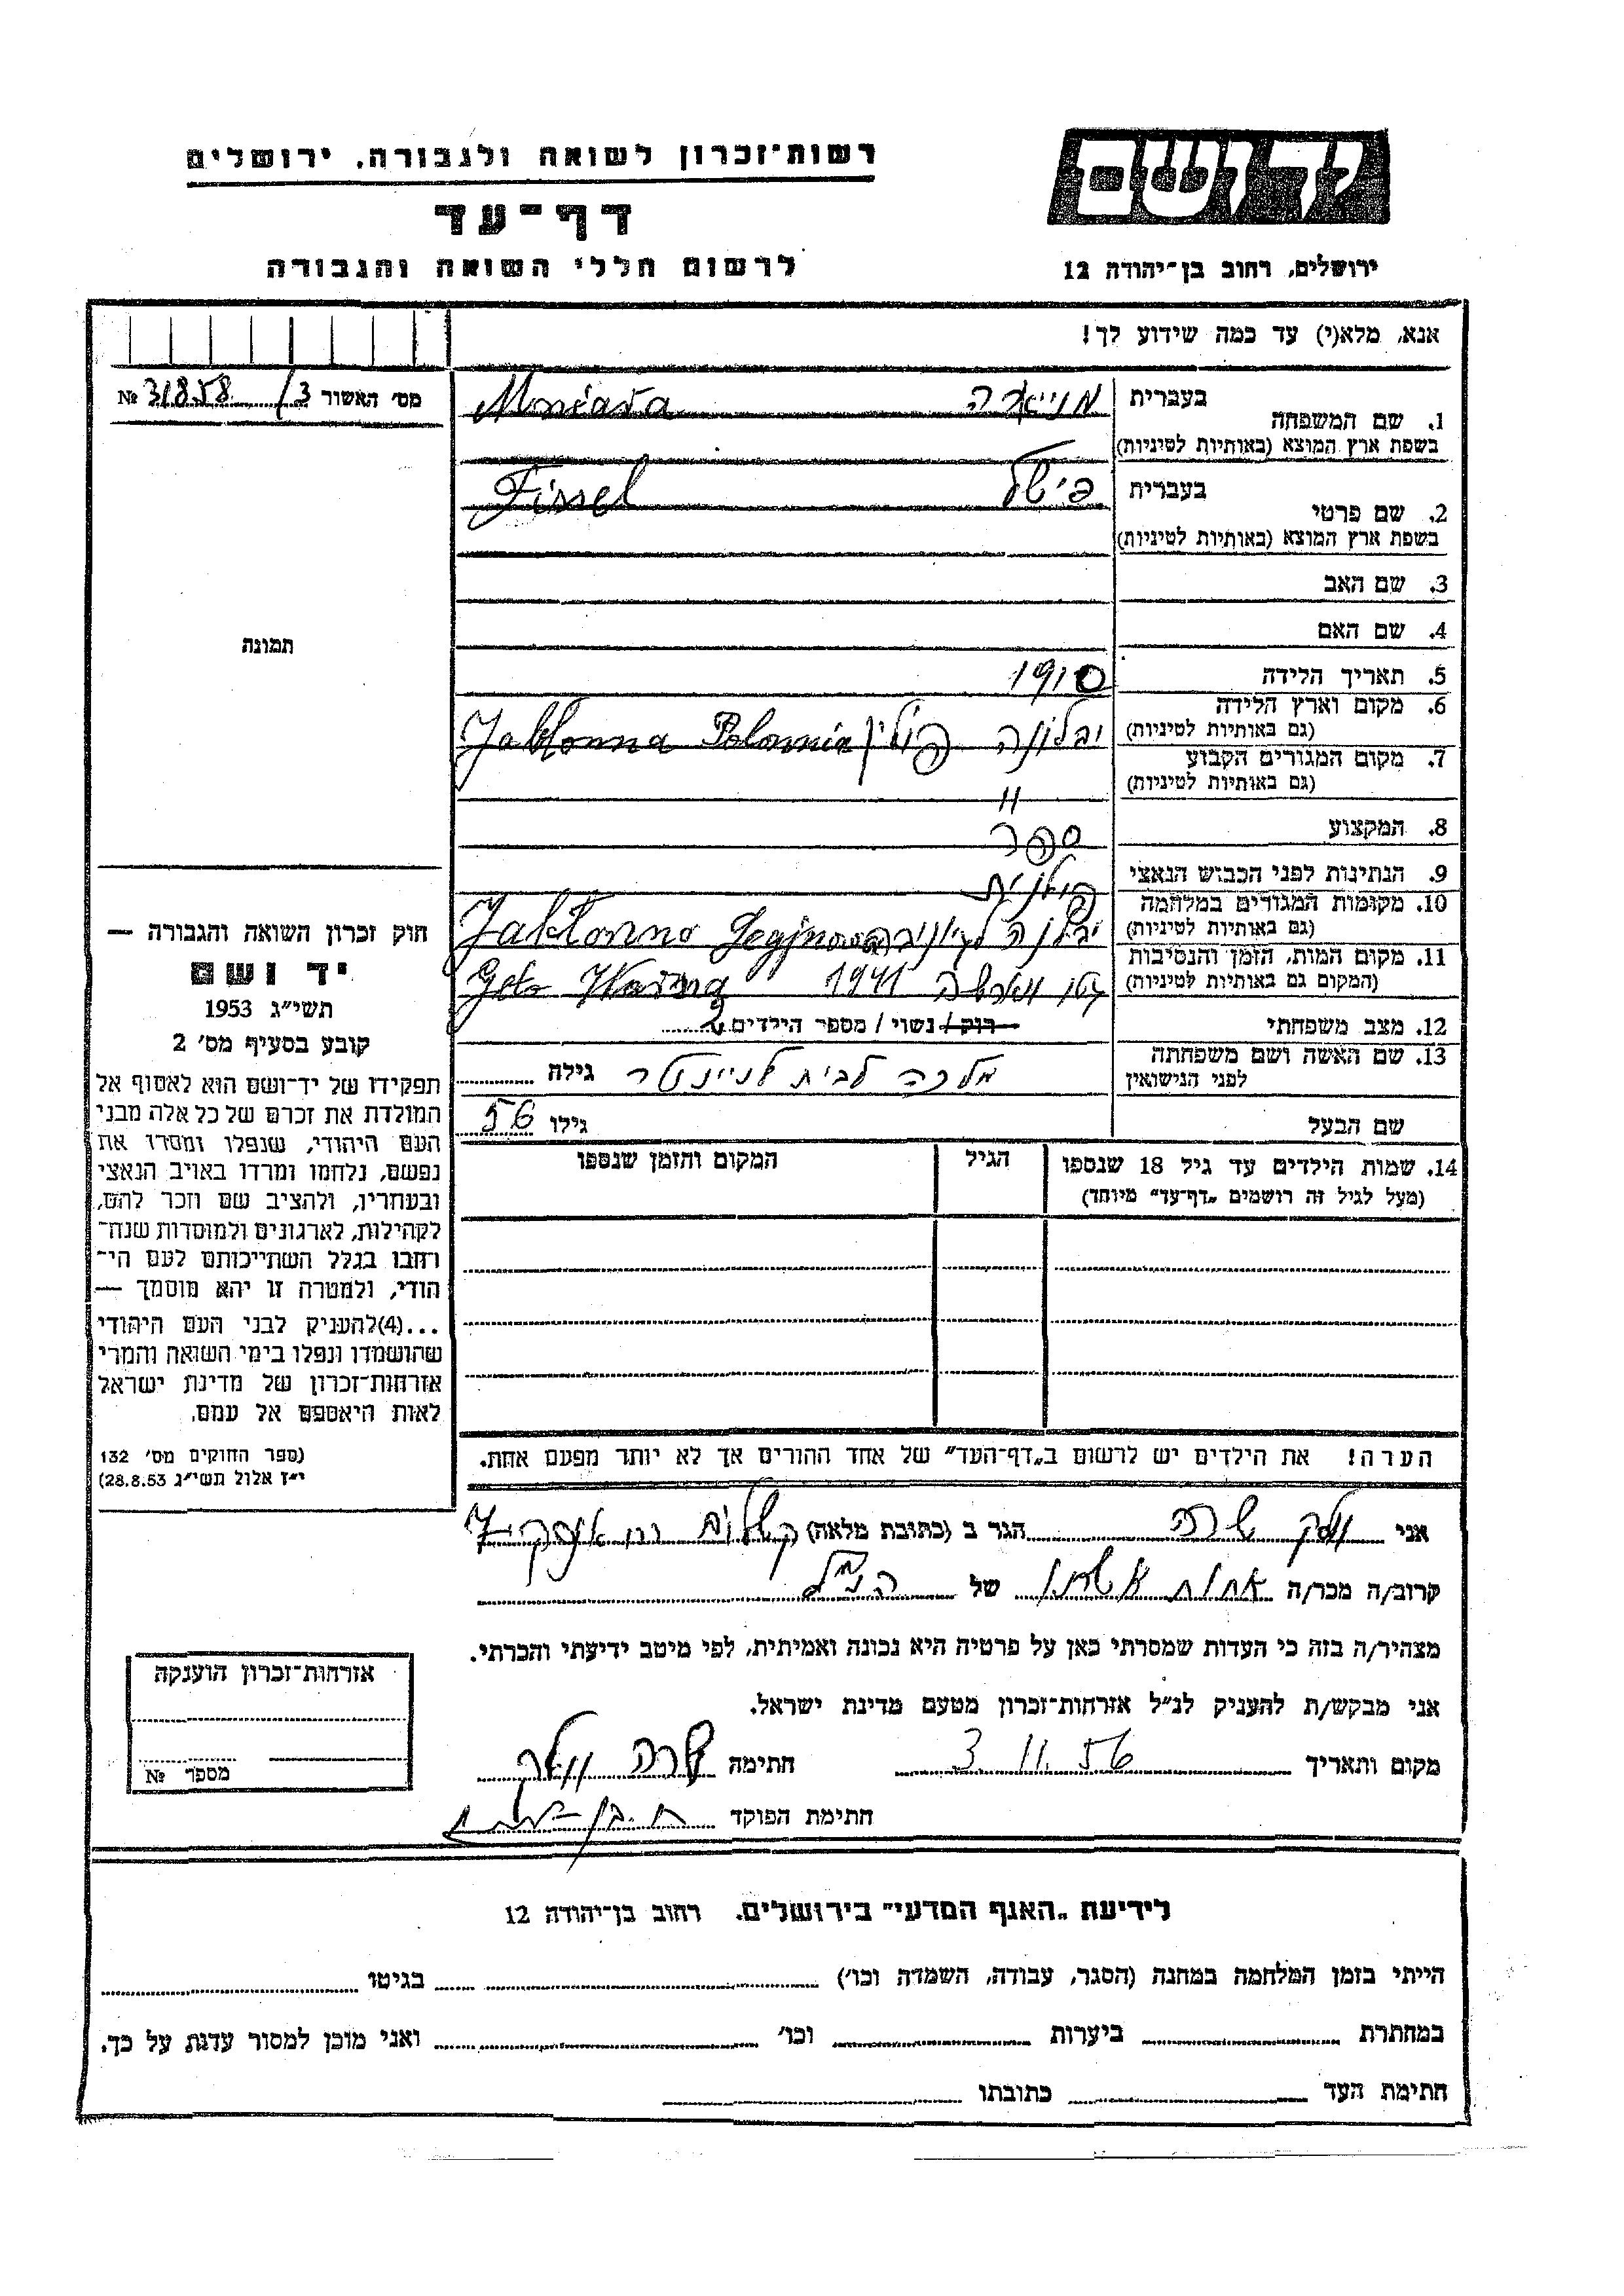 רשות־זכרון לשואה ולגבורה, ירושלים
דף־עד
לרשום חללי השואה והגבורה
יד ושם
ירושלים, רחוב בן־יהודה 12
אנא, מלא(י) עד כמה שידוע לך!
מס׳ האשור 3/ 31858 №
1. שם המשפחה
בעברית
בשפת ארץ המוצא (באותיות לטיניות)
2. שם פרטי
בעברית פישל Fissel
בשפת ארץ המוצא (באותיות לטיניות)
3. שם האב
4. שם האם
5. תאריך הלידה 1910
6. מקום וארץ הלידה יבלונה פולין Jabłonna Polonnia
(גם באותיות לטיניות)
7. מקום המגורים הקבוע
(גם באותיות לטיניות) "
8. המקצוע ספר
9. הנתינות לפני הכבוש הנאצי פולנית
10. מקומות המגורים במלחמה יבלנה Jabłonna
(גם באותיות לטיניות)
11. מקום המות, הזמן והנסיבות גטו ווארשה 1941 Geto
(המקום גם באותיות לטיניות)
12. מצב משפחתי רוק / נשוי / מספר הילדים 2
13. שם האשה ושם משפחתה
לפני הנישואין מלכה לבית גילה
שם הבעל גילו 56
14. שמות הילדים עד גיל 18 שנספו
(מעל לגיל זה רושמים „דף־עד״ מיוחד)
הגיל
המקום והזמן שנספו
הערה! את הילדים יש לרשום ב„דף־העד״ של אחד ההורים אך לא יותר מפעם אחת.
תמונה
חוק זכרון השואה והגבורה —
יד ושם
תשי״ג 1953
קובע בסעיף מס׳ 2
תפקידו של יד־ושם הוא לאסוף אל
המולדת את זכרם של כל אלה מבני
העם היהודי, שנפלו ומסרו את
נפשם, נלחמו ומרדו באויב הנאצי
ובעחריו, ולהציב שם וזכר להם,
לקהילות, לארגונים ולמוסדות שנח־
רחבו בגלל השתייכותם לעם הי־
הודי, ולמטרה זו יהא מוסמך —
...(4)להעניק לבני העם היהודי
שהושמדו ונפלו בימי השואה והמרי
אזרחות־זכרון של מדינת ישראל
לאות היאספם אל עמם.
(ספר החוקים מס׳ 132
י״ז אלול תשי״ג 28.8.53)
אני שרה הגר ב (כתובת מלאה)
קרוב/ה מכר/ה אחות אשתו של הנ״ל
מצהיר/ה בזה כי העדות שמסרתי כאן על פרטיה היא נכונה ואמיתית, לפי מיטב ידיעתי והכרתי.
אני מבקש/ת להעניק לנ״ל אזרחות־זכרון מטעם מדינת ישראל.
מקום ותאריך 3.11.56 חתימה שרה
חתימת הפוקד
אזרחות־זכרון הוענקה
מספר №
לידיעת „האגף המדעי״ בירושלים. רחוב בן־יהודה 12
הייתי בזמן המלחמה במחנה (הסגר, עבודה, השמדה וכו׳) בגיטו
במחתרת ביערות וכו׳ ואני מוכן למסור עדות על כך.
חתימת העד כתובתו